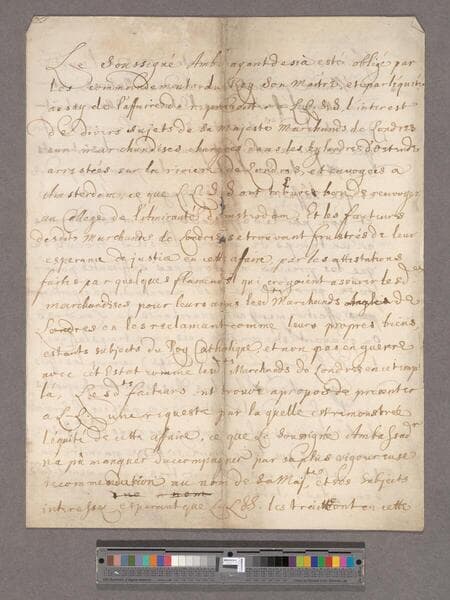 Le Soussigné Ambr ayant desia esté obligé par
les commandements du Roy son Maitre, et par l'équité
de l'affaire de representer a LL SS l'interest
de divers sujets de sa Majesté Marchands de Londres
en marchandises chargées dans les d'Ostende
arrestées sur la riviere de Londres, et envoyées a
Amsterdam, ce que LL SS ont trouvé bon de renvoyer
au College de l'Amirauté d'Amsterdam, Et les facteurs
desdits Marchands de Londres se trouvant frustrés de leur
esperance de justice en cette affaire, par les attestations
faites par quelques flamands qui croyoient asseurer les
marchandises pour leurs amis les dts Marchands anglois de
Londres en les reclamant comme leurs propres biens
estants subjects du Roy Catholique, et non pas en guerre
avec cet Estat comme les dts Marchands de Londres en ce temps
la, Les dts facteurs ont trouvé apropos de presenter
a LL SS une requeste par la quelle est remonstrée
l'équité de cette affaire, ce que Le Soussigné Ambassadr
n'a pû manquer d'accompagner par sa plus vigoureuse
recommendation au nom de sa Majté et ses Subjects
interessés esperant que LL SS. les traitteront en cette